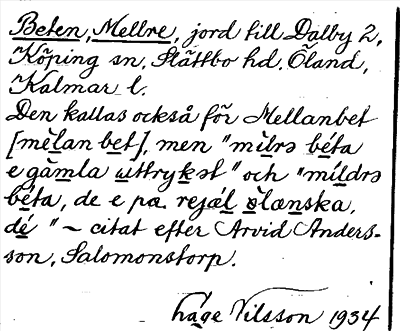 Beten, Mellre, jord till Dalby 2,
Köping sn, Slättbo hd. Öland,
Kalmar l.
Den kallas också för Mellanbet
[mèlan bet], men "mìlrə béta
e gàmla uttrykət" och "míldrə
béta, de e pa rejäl ölænska,
dé" ~ citat efter Arvid Anders-
son, Salomonstorp.
Håge Nilsson 1934